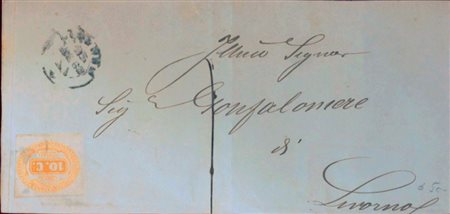 Illmo Signor
Sig Gonfaloniere
di
Livorno
10 C.